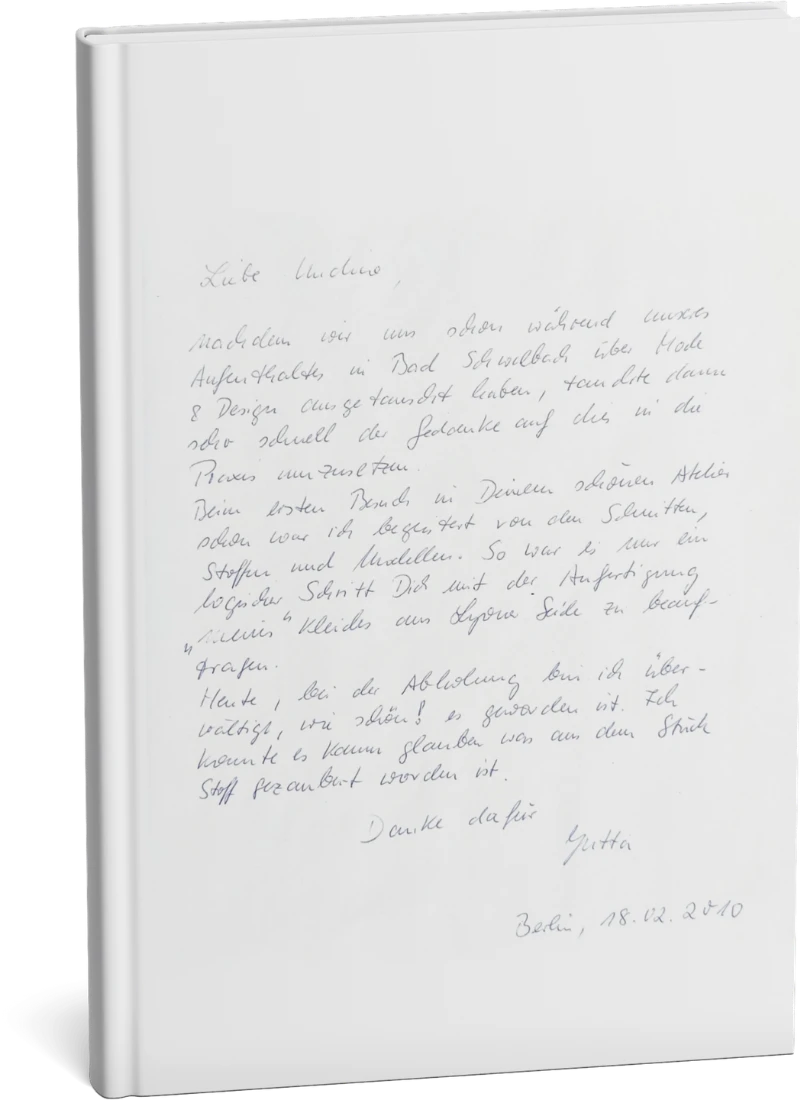 Liebe Undine,
nachdem wir uns schon während unseres
Aufenthaltes in Bad Schwalbach über Mode
& Design ausgetauscht haben, tauchte dann
sehr schnell der Gedanke auf dies in die
Praxis umzusetzen.
Beim ersten Besuch in Deinem schönen Atelier
schon war ich begeistert von den Schnitten,
Stoffen und Modellen. So war es nur ein
logischer Schritt Dich mit der Anfertigung
"meines" Kleides aus Lyoner Seide zu beauf-
tragen.
Heute, bei der Abholung bin ich über-
wältigt, wie schön! es geworden ist. Ich
konnte es kaum glauben was aus dem Stück
Stoff gezaubert worden ist.
Danke dafür
Jutta
Berlin, 18.02.2010